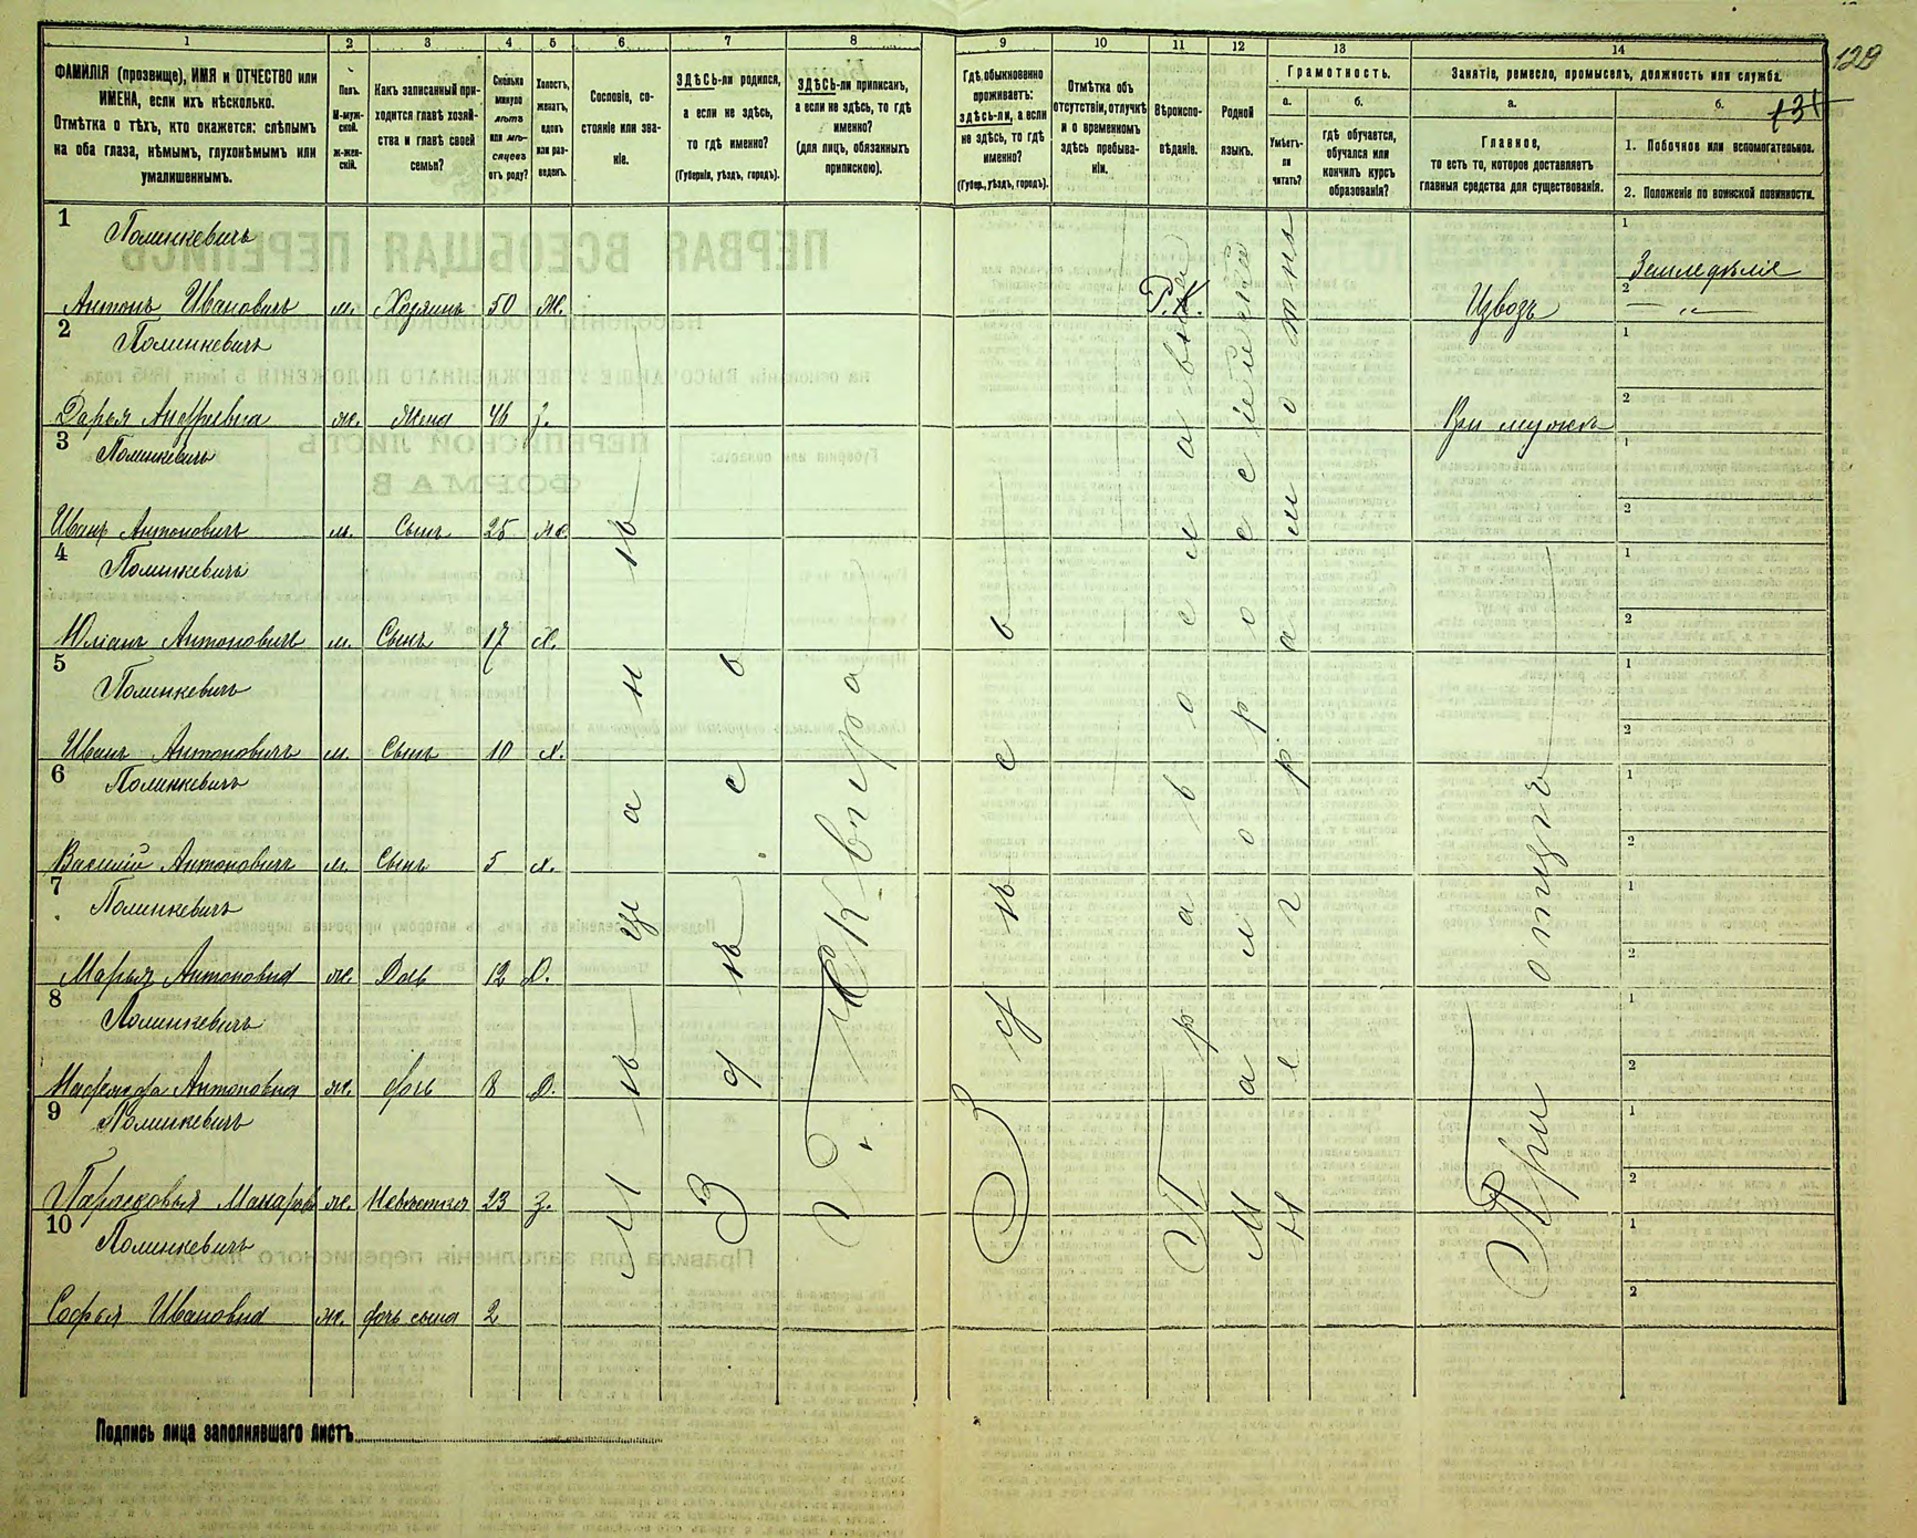 129
131
1 2 3 4 5 6 7 8 9 10 11 12 13 14
ФАМИЛІЯ (прозвище), ИМЯ и ОТЧЕСТВО или ИМЕНА, если ихъ нѣсколько.
Отмѣтка о тѣхъ, кто окажется: слѣпымъ на оба глаза, нѣмымъ, глухонѣмымъ или умалишеннымъ.
Полъ.
М-мужской.
ж-женскій.
Какъ записанный приходится главѣ хозяйства и главѣ своей семьи?
Сколько минуло лѣтъ или мѣсяцевъ отъ роду?
Холостъ, женатъ, вдовъ или разведенъ.
Сословіе, состояніе или званіе.
ЗДѢСЬ-ли родился, а если не здѣсь, то гдѣ именно?
(Губернія, уѣздъ, городъ).
ЗДѢСЬ-ли приписанъ, а если не здѣсь, то гдѣ именно?
(для лицъ, обязанныхъ припискою).
Гдѣ обыкновенно проживаетъ: здѣсь-ли, а если не здѣсь, то гдѣ именно?
(Губер., уѣздъ, городъ).
Отмѣтка объ отсутствіи, отлучкѣ и о временномъ здѣсь пребываніи.
Вѣроисповѣданіе.
Родной языкъ.
Грамотность.
а.
Умѣетъ-ли читать?
б.
гдѣ обучается, обучался или кончилъ курсъ образованія?
Занятіе, ремесло, промыселъ, должность или служба.
а.
Главное,
то есть то, которое доставляетъ главныя средства для существованія.
б.
1. Побочное или вспомогательное.
2. Положеніе по воинской повинности.
1 Полинкевичъ
Антонъ Ивановичъ м. Хозяинъ 50 Ж. Р.К. Извозъ 1 Земледѣліе 2
2 Полинкевичъ
Дарья Андреевна ж. Жена 46 З. При мужѣ 1 2
3 Полинкевичъ
Иванъ Антоновичъ м. Сынъ 25 Ж. 1 2
4 Полинкевичъ
Юліанъ Антоновичъ м. Сынъ 17 Х. 1 2
5 Полинкевичъ
Иванъ Антоновичъ м. Сынъ 10 Х. 1 2
6 Полинкевичъ
Василій Антоновичъ м. Сынъ 5 Х. 1 2
7 Полинкевичъ
Марья Антоновна ж. Дочь 12 Д. 1 2
8 Полинкевичъ
Антоновна ж. дочь 8 Д. 1 2
9 Полинкевичъ
Парасковья ж. Невѣстка 23 З. 1 2
10 Полинкевичъ
Софья Ивановна ж. дочь сына 2 1 2
Мѣщанѣ
Здѣсь
Здѣсь
Православная
Малороссійскій
Неграмотны
При отцѣ
Подпись лица заполнявшаго листъ